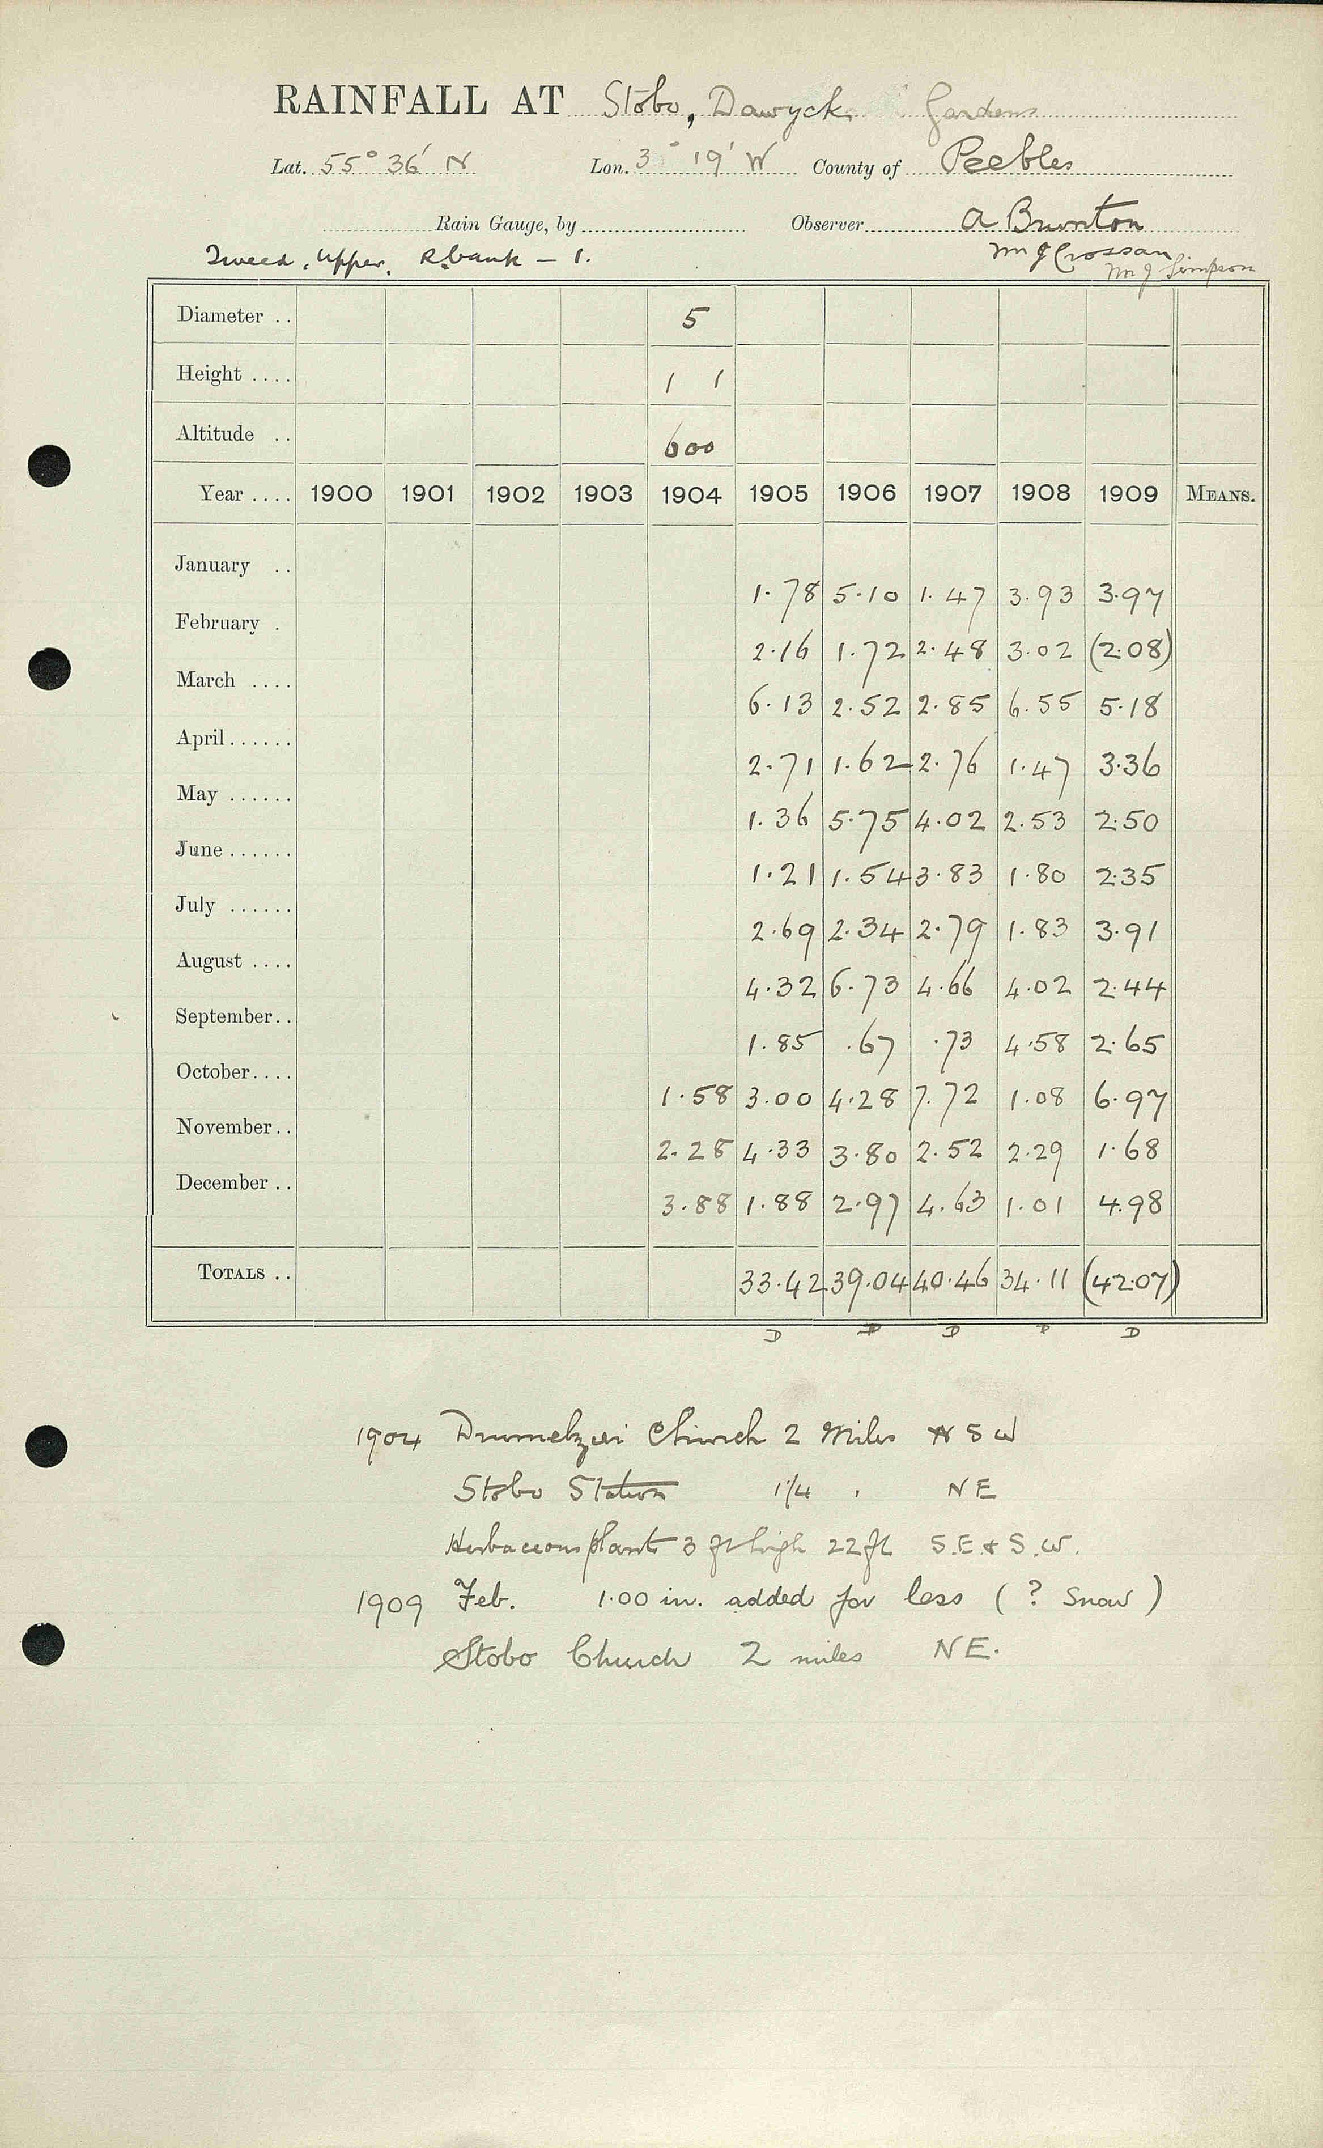 RAINFALL AT Stobo, Dawyck Gardens
Lat. 55° 36' N Lon. 3° 19' W County of Peebles
Rain Gauge, by Observer A Brunton
Tweed, Upper, R. bank – 1. Mr J Crossan
Mr J Simpson
Diameter .. 5
Height .... 1 1
Altitude .. 600
Year .... 1900 1901 1902 1903 1904 1905 1906 1907 1908 1909 MEANS.
January .. 1.78 5.10 1.47 3.93 3.97
February . 2.16 1.72 2.48 3.02 (2.08)
March .... 6.13 2.52 2.85 6.55 5.18
April ...... 2.71 1.62 2.76 1.47 3.36
May ...... 1.36 5.75 4.02 2.53 2.50
June ...... 1.21 1.54 3.83 1.80 2.35
July ...... 2.69 2.34 2.79 1.83 3.91
August .... 4.32 6.73 4.66 4.02 2.44
September.. 1.85 .67 .73 4.58 2.65
October.... 1.58 3.00 4.28 7.72 1.08 6.97
November.. 2.28 4.33 3.80 2.52 2.29 1.68
December .. 3.88 1.88 2.97 4.63 1.01 4.98
TOTALS .. 33.42 39.04 40.46 34.11 (42.07)
D D D P D
1904 Drumelzier Church 2 Miles S W
Stobo Station 1¼ " NE
Herbaceous plants 3 ft high 22 ft S.E & S.W.
1909 Feb. 1.00 in. added for loss (? Snow)
Stobo Church 2 miles NE.